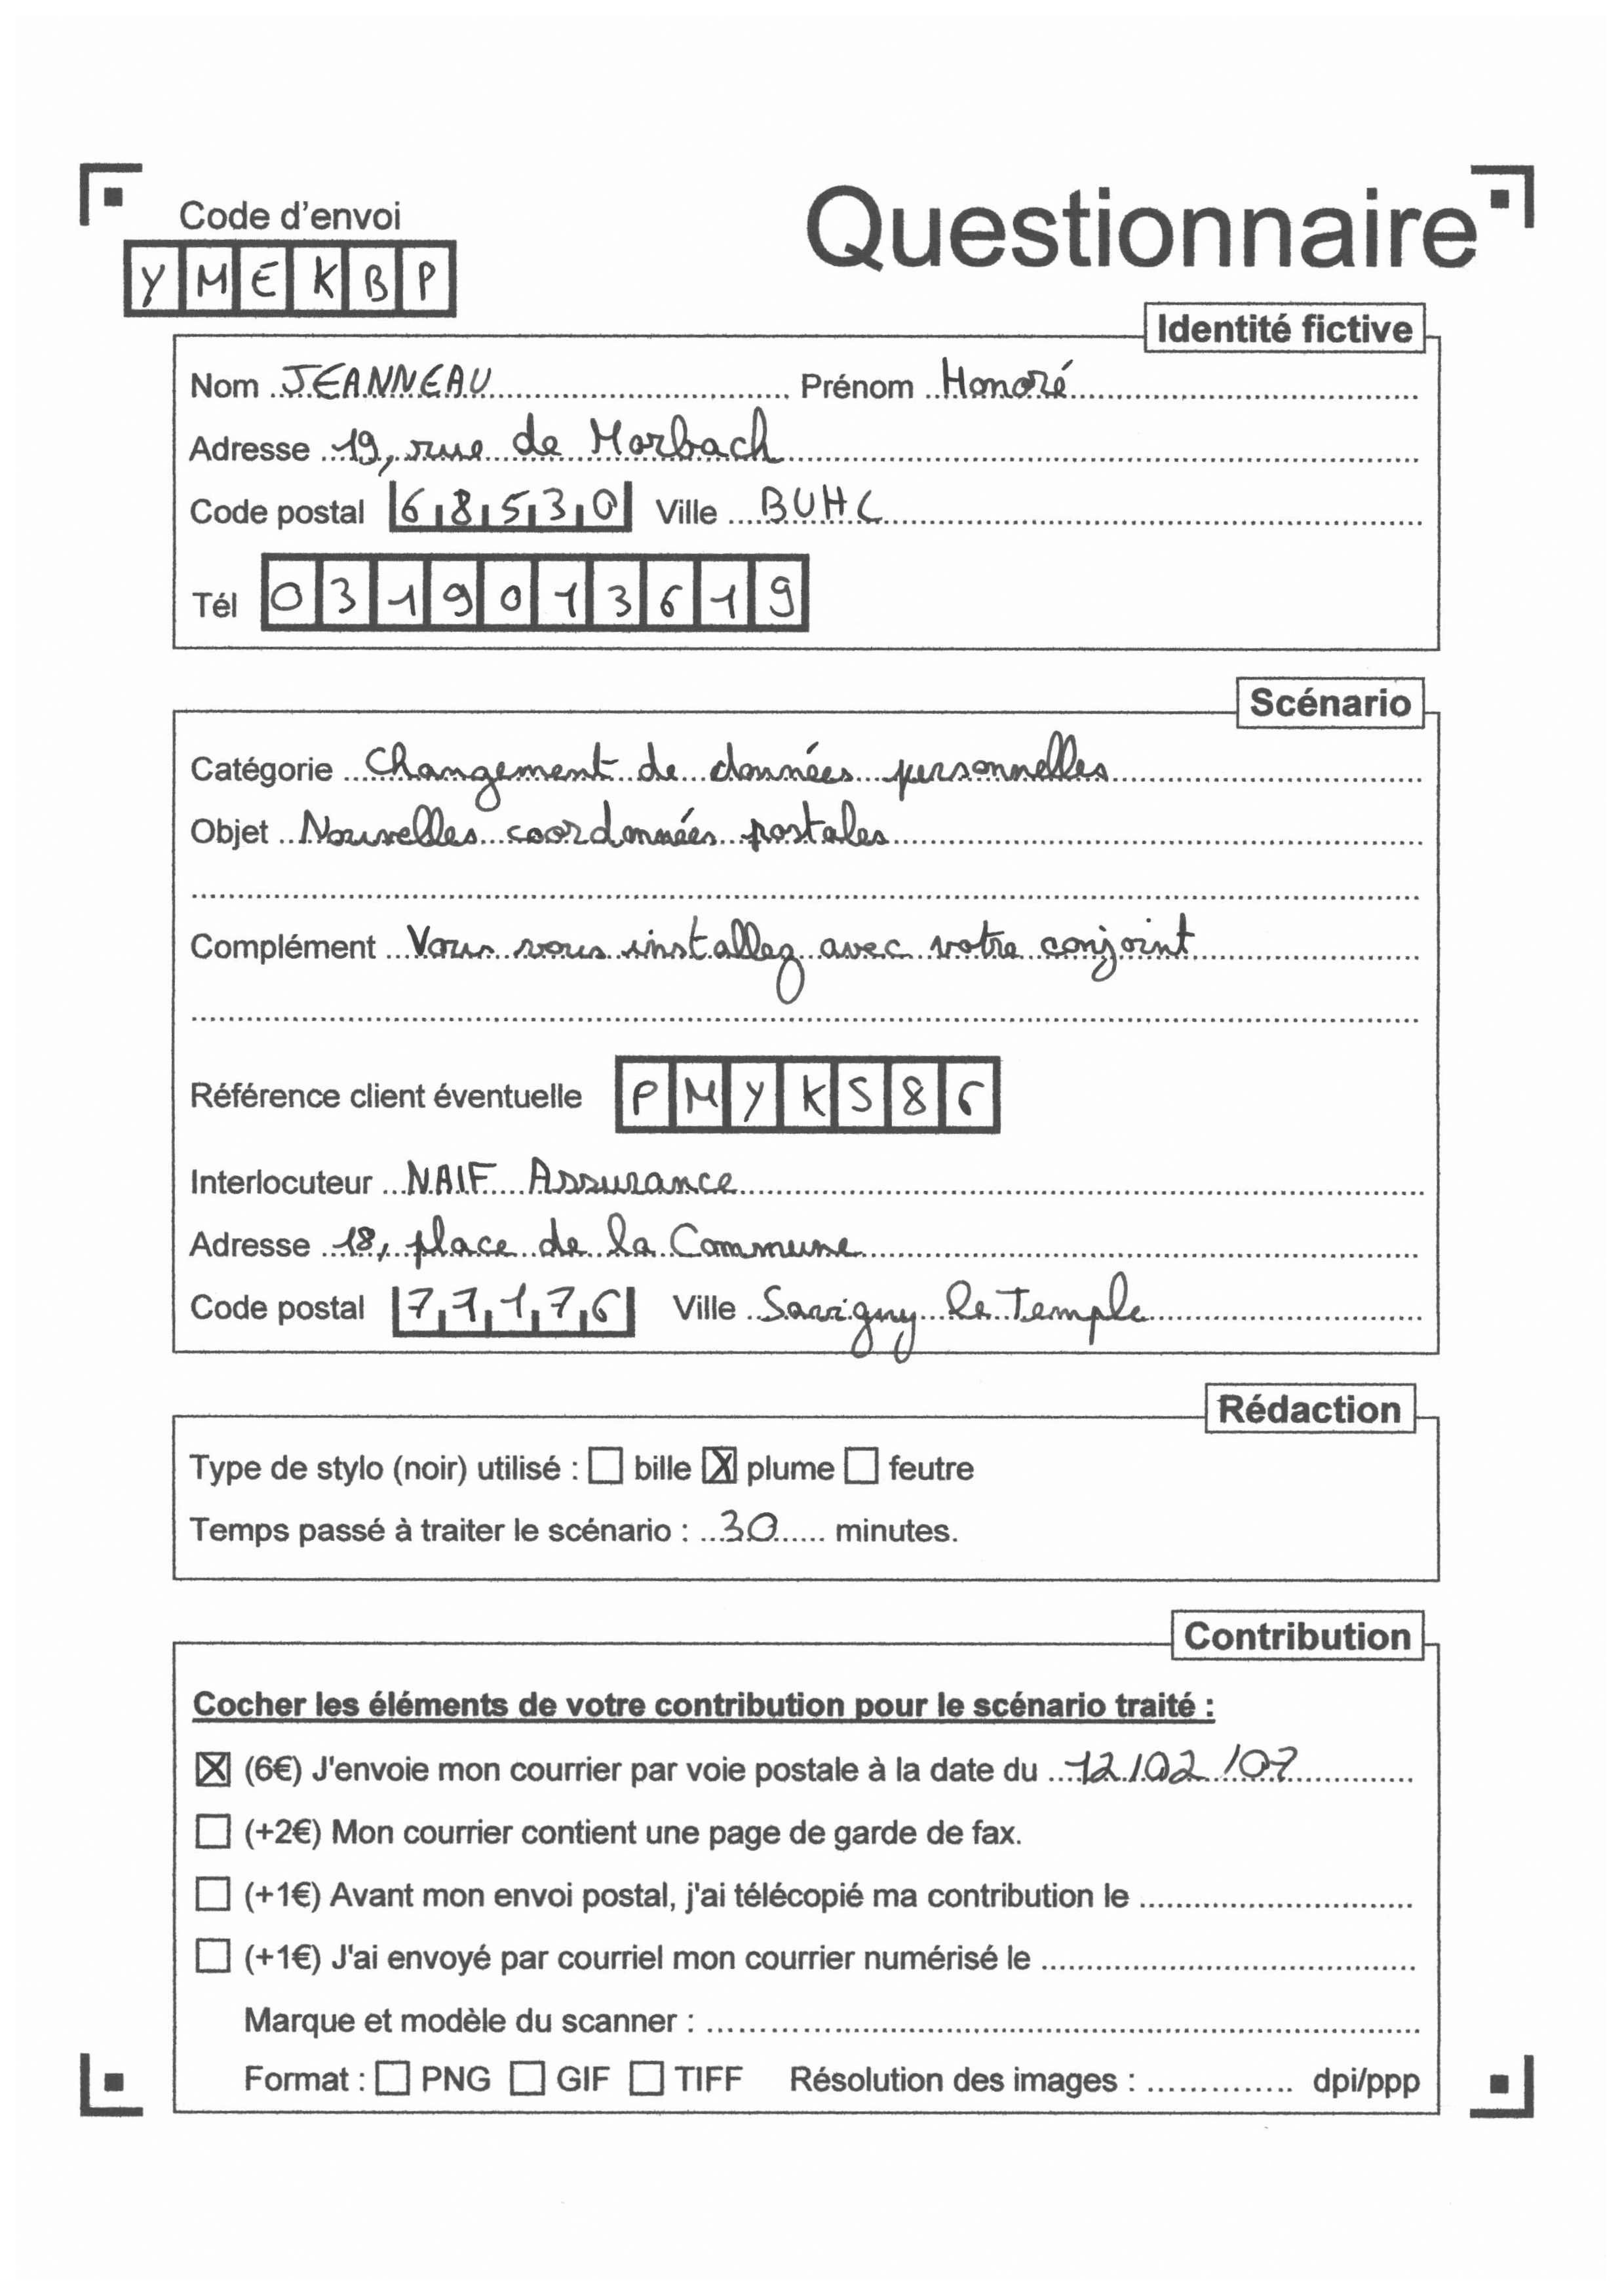 Code d'envoi
Questionnaire
YMEKBP
Identité fictive
Nom JEANNEAU Prénom Honoré
Adresse 19, rue de Morbach
Code postal 68530 Ville BUHL
Tél 0319013619
Scénario
Catégorie Changement de données personnelles
Objet Nouvelles coordonnées postales
Complément Vous vous installez avec votre conjoint
Référence client éventuelle PMYKS86
Interlocuteur NAIF Assurance
Adresse 18, place de la Commune
Code postal 77176 Ville Savigny le Temple
Rédaction
Type de stylo (noir) utilisé : ☐ bille ☒ plume ☐ feutre
Temps passé à traiter le scénario : 30 minutes.
Contribution
Cocher les éléments de votre contribution pour le scénario traité :
☒ (6€) J'envoie mon courrier par voie postale à la date du 12/02/07
☐ (+2€) Mon courrier contient une page de garde de fax.
☐ (+1€) Avant mon envoi postal, j'ai télécopié ma contribution le
☐ (+1€) J'ai envoyé par courriel mon courrier numérisé le
Marque et modèle du scanner :
Format : ☐ PNG ☐ GIF ☐ TIFF Résolution des images : dpi/ppp